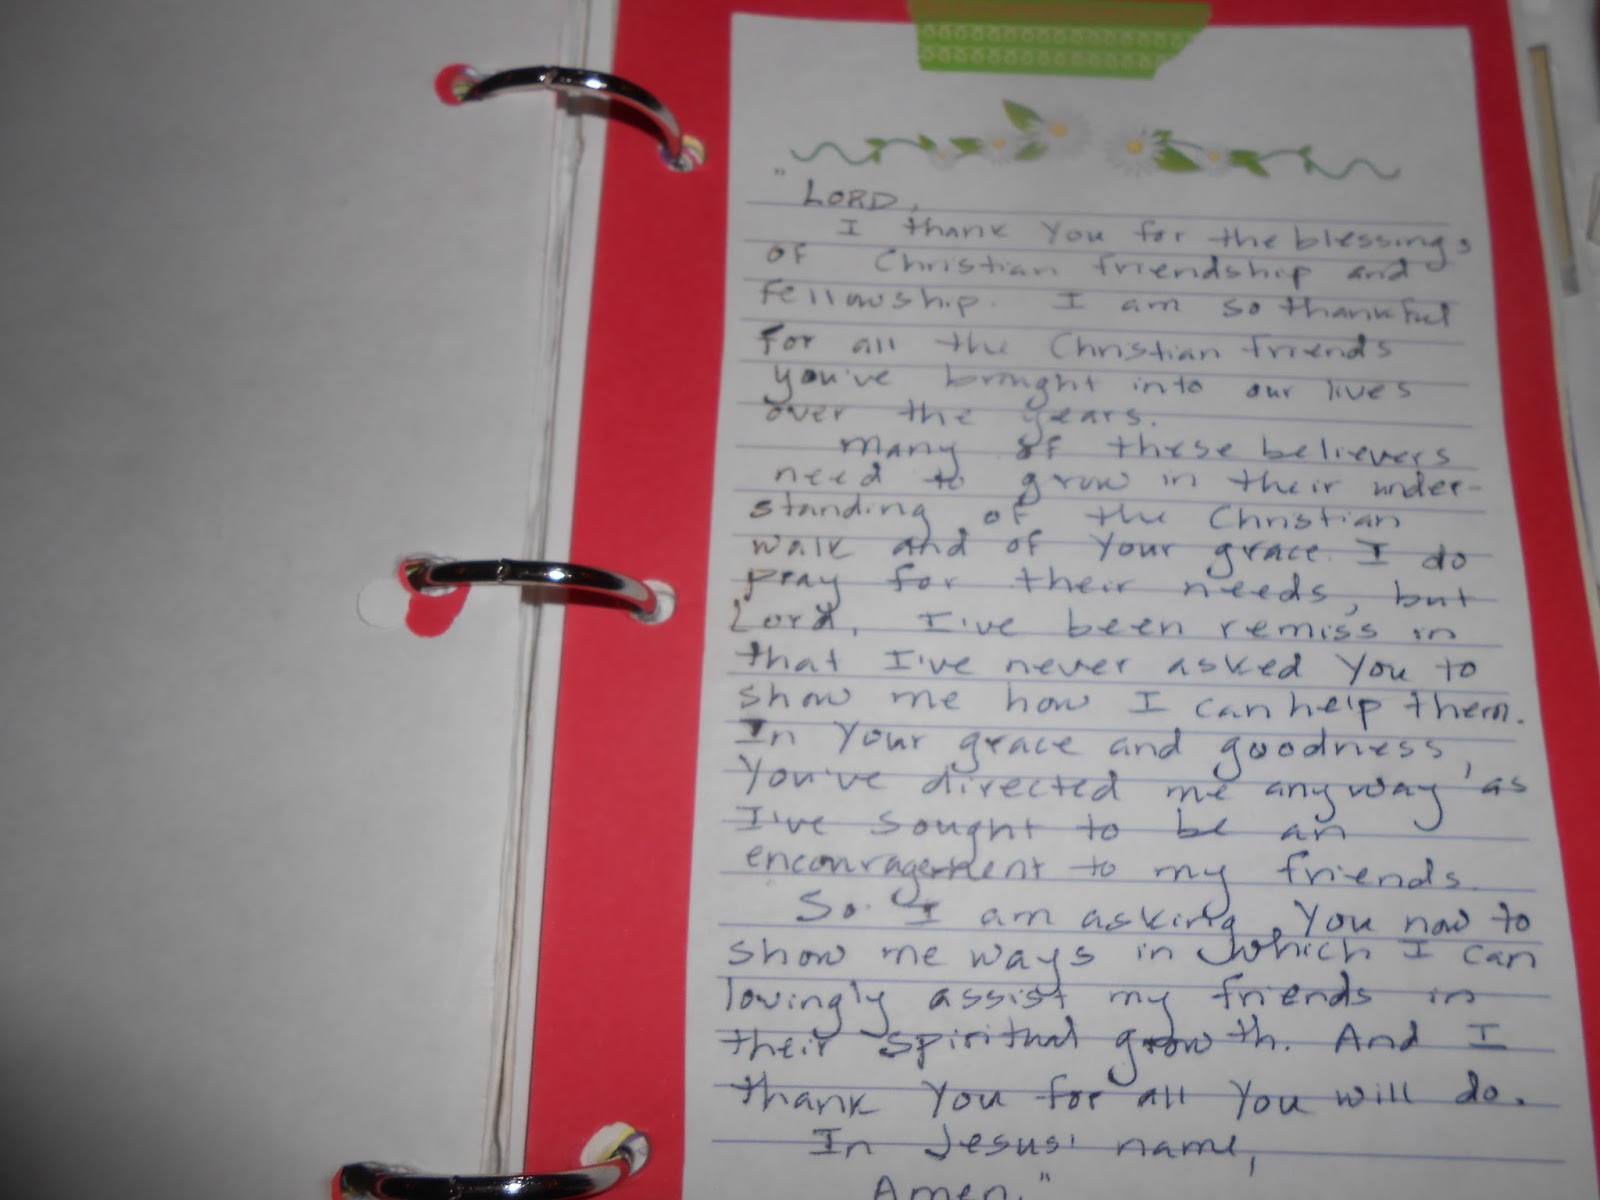 "LORD,
I thank You for the blessings
of Christian friendship and
fellowship. I am so thankful
for all the Christian friends
you've brought into our lives
over the years.
Many of these believers
need to grow in their under-
standing of the Christian
walk and of Your grace. I do
pray for their needs, but
Lord, I've been remiss in
that I've never asked You to
show me how I can help them.
In Your grace and goodness,
You've directed me anyway as
I've sought to be an
encouragement to my friends.
So I am asking You now to
show me ways in which I can
lovingly assist my friends in
their spiritual growth. And I
thank You for all You will do.
In Jesus' name,
Amen."